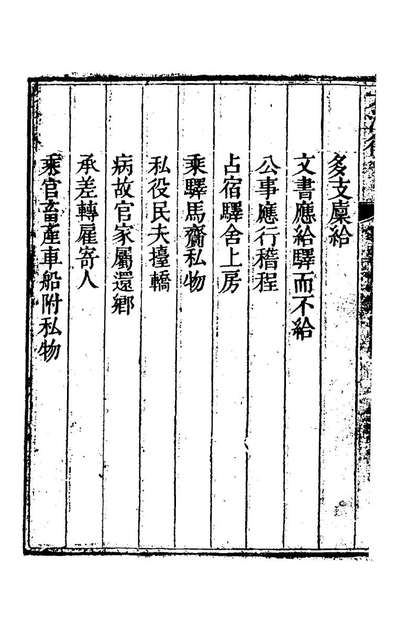 多支廩給
文書應給驛而不給
公事應行稽程
占宿驛舍上房
乘驛馬齎私物
私役民夫擡轎
病故官家屬還鄉
承差轉雇寄人
乘官畜產車船附私物